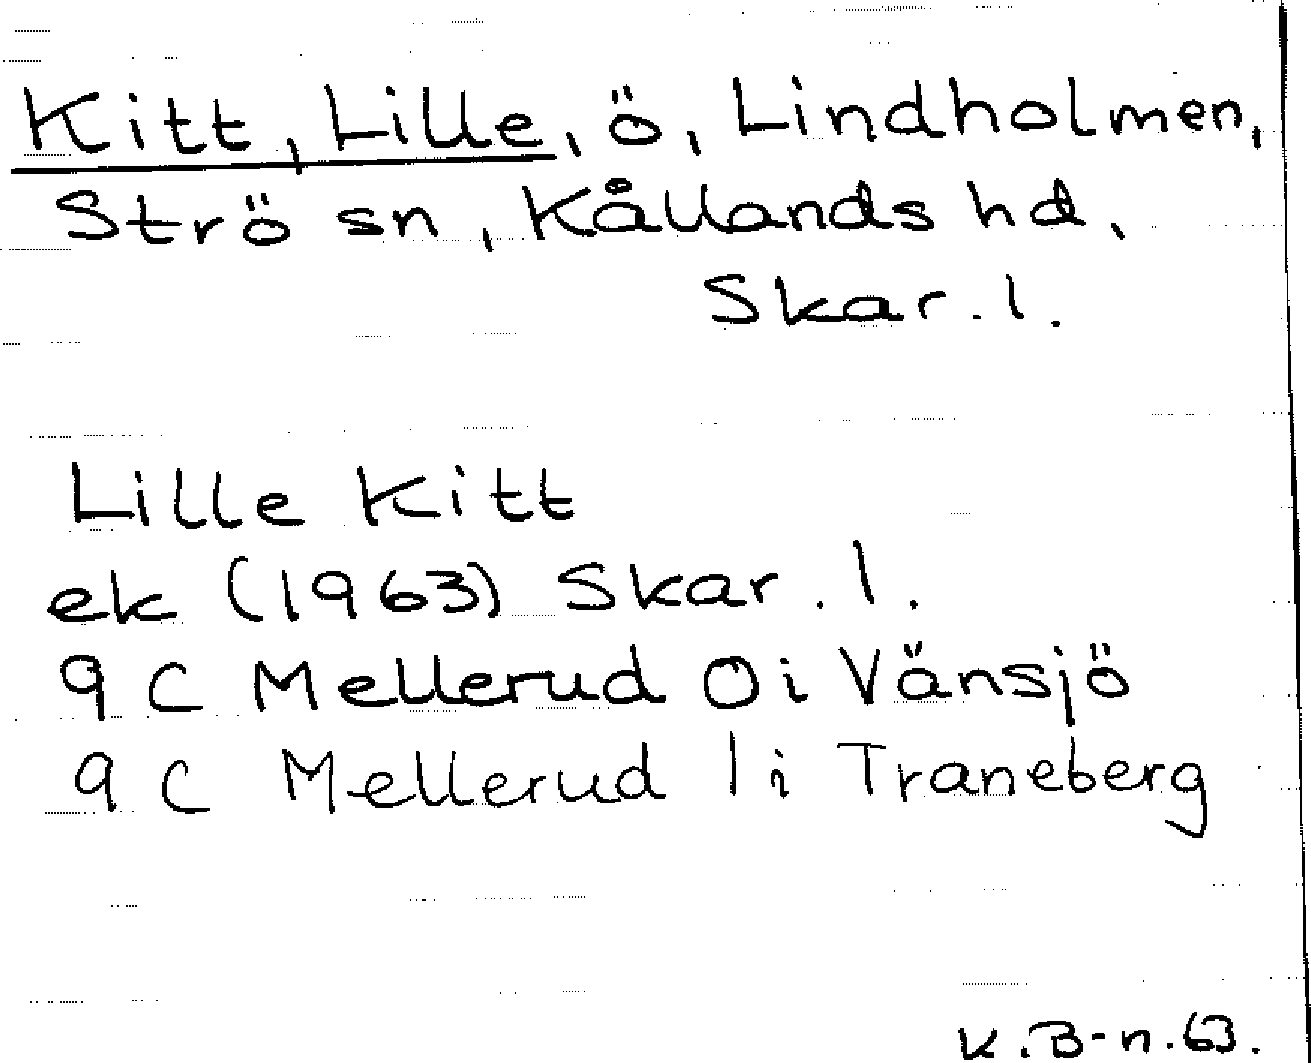 Kitt, Lille, ö, Lindholmen,
Strö sn, Kållands hd,
Skar. l.
Lille Kitt
ek (1963) Skar. l.
9 C Mellerud 0 i Vänsjö
9 C Mellerud 1 i Traneberg
K. B-n. 63.